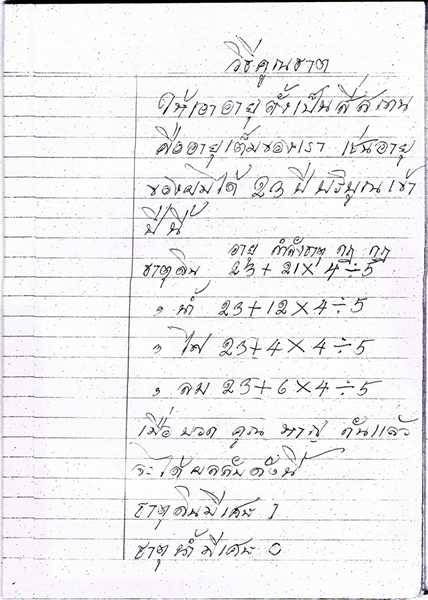 วิธีคูณธาตุ
ให้เอาอายุตั้งเป็นสี่สถาน
คืออายุเต็มของเรา เช่นอายุ
ของผมได้ 23 ปีบริบูรณ์เข้า
ปีนี้
อายุ กำลังธาตุ กฎ กฎ
ธาตุดิน 23+21×4÷5
" น้ำ 23+12×4÷5
" ไฟ 23+4×4÷5
" ลม 23+6×4÷5
เมื่อ บวก คูณ หาร กันแล้ว
จะได้ผลลัพดังนี้
ธาตุดินมีเศษ 1
ธาตุน้ำมีเศษ 0